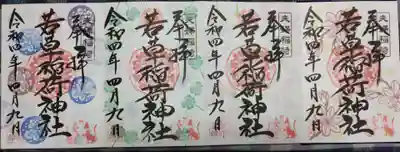 奉拝
若草稲荷神社
令和四年四月九日
奉拝
若草稲荷神社
令和四年四月九日
奉拝
若草稲荷神社
令和四年四月九日
奉拝
若草稲荷神社
令和四年四月九日